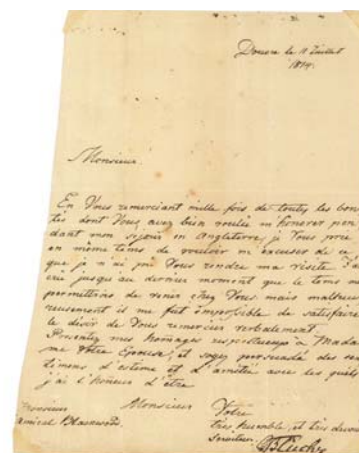 Douvre le 11 Juillet
1814.
Monsieur.
En Vous remerciant mille fois de touts les bon
tés dont Vous avez bien voulu m'honorer pen
dant mon sejour en Angleterre, je Vous prie
en même tems de vouloir m'excuser de ce
que je n'ai pu Vous rendre ma visite. J'ai
crû jusqu'au dernier moment que le tems me
permettrois de venir chez Vous, mais malheu
reusement il me fut impossible de satisfaire
le désir de Vous remercier verbalement.
Presentez mes homages respectueux à Mada
me Votre Epouse, et soyez persuadé des sen
timens d'estime et d'amitié avec les quels
j'ai l'honeur d'être
Monsieur Votre
Monsieur très humble, et très devoué
Blackwood. Serviteur.